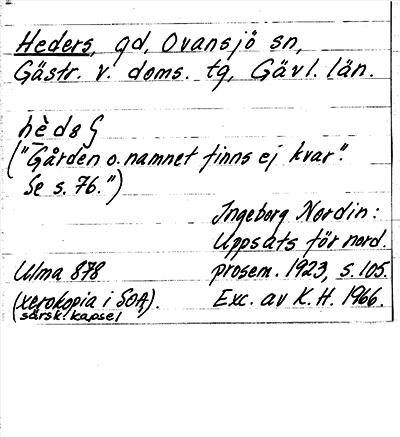 Heders, gd, Ovansjö sn,
Gästr. v. doms. tg, Gävl. län.
hèdaʂ
("Gården o. namnet finns ej kvar".
Se s. 76.")
Ingeborg Nordin:
Uppsats för nord.
Ulma 878 prosem. 1923, s. 105.
(xerokopia i SOA). Exc. av K. H. 1966.
(särsk. kapsel